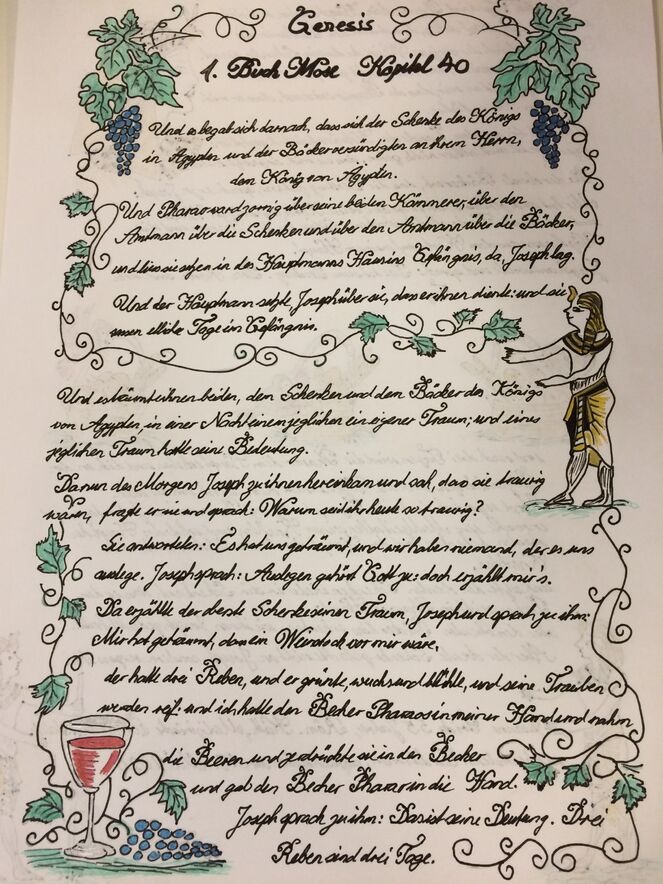 Genesis
1. Buch Mose Kapitel 40
Und es begab sich darnach, dass sich der Schenke des Königs
in Ägypten und der Bäcker versündigten an ihrem Herrn,
dem König von Ägypten.
Und Pharao ward zornig über seine beiden Kämmerer, über den
Amtmann über die Schenken und über den Amtmann über die Bäcker,
und liess sie setzen in des Hauptmanns Haus ins Gefängnis, da, Joseph lag.
Und der Hauptmann setzte Joseph über sie, dass er ihnen diente: und sie
sassen etliche Tage im Gefängnis.
Und es träumte ihnen beiden, dem Schenken und dem Bäcker des Königs
von Ägypten, in einer Nacht einem jeglichen ein eigener Traum; und eines
jeglichen Traum hatte seine Bedeutung.
Da nun des Morgens Joseph zu ihnen hereinkam und sah, dass sie traurig
wären, fragte er sie und sprach: Warum seid ihr heute so traurig?
Sie antworteten: Es hat uns geträumt, und wir haben niemand, der es uns
auslege. Joseph sprach: Auslegen gehört Gott zu: doch erzählt mir's.
Da erzählte der oberste Schenke seinen Traum, Joseph und sprach zu ihm:
Mir hat geträumt, dass ein Weinstock vor mir wäre,
der hatte drei Reben, und er grünte, wuchs und blühte, und seine Trauben
wurden reif: und ich hatte den Becher Pharaos in meiner Hand und nahm
die Beeren und zerdrückte sie in den Becher
und gab den Becher Pharao in die Hand.
Joseph sprach zu ihm: Das ist seine Deutung. Drei
Reben sind drei Tage.